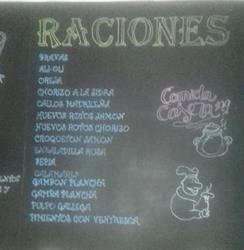 RACIONES
BRAVAS
ALI-OLI
OREJA
CHORIZO A LA SIDRA
CALLOS MADRILEÑA
HUEVOS ROTOS JAMON
HUEVOS ROTOS CHORIZO
CROQUETON JAMON
ENSALADILLA RUSA
SEPIA
CALAMARES
GAMBON PLANCHA
GAMBA PLANCHA
PULPO GALLEGA
PIMIENTOS CON VENTRESCA
Comida
Casera